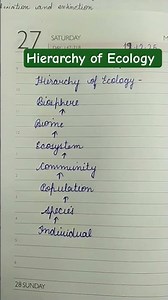 27
SATURDAY
Hierarchy of Ecology
Hierarchy of Ecology -
Biosphere
↑
Biome
↑
Ecosystem
↑
Community
↑
Population
↑
Species
↑
Individual
28 SUNDAY